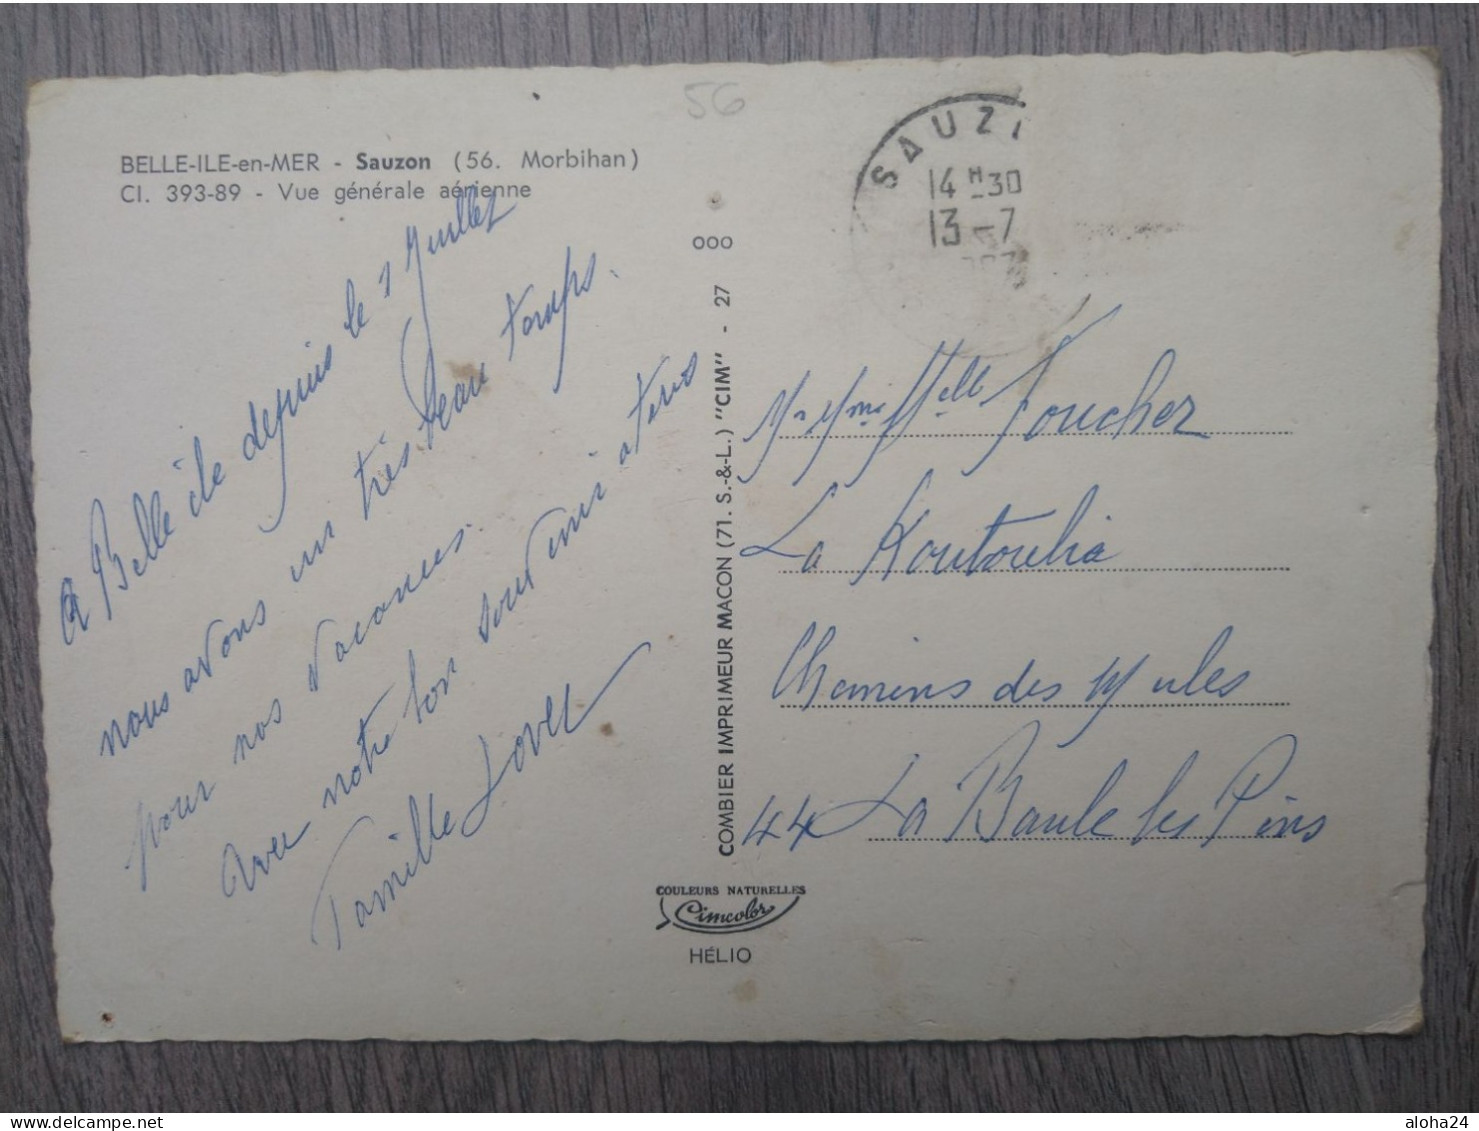 56
BELLE-ILE-en-MER - Sauzon (56. Morbihan)
CI. 393-89 - Vue générale aérienne
a Belle île depuis le 1 Juillet
nous avons un très beau temps.
pour nos vacances.
Avec notre bon souvenir a tous
Famille
000
COMBIER IMPRIMEUR MACON (71. S.-&-L.) "CIM" - 27
COULEURS NATURELLES
Cimcolor
HÉLIO
SAUZ
14 H 30
13-7
Mr Mme Melle Foucher
La Koutoubia
Chemins des Mules
44 La Baule les Pins
www.delcampe.net
aloha24